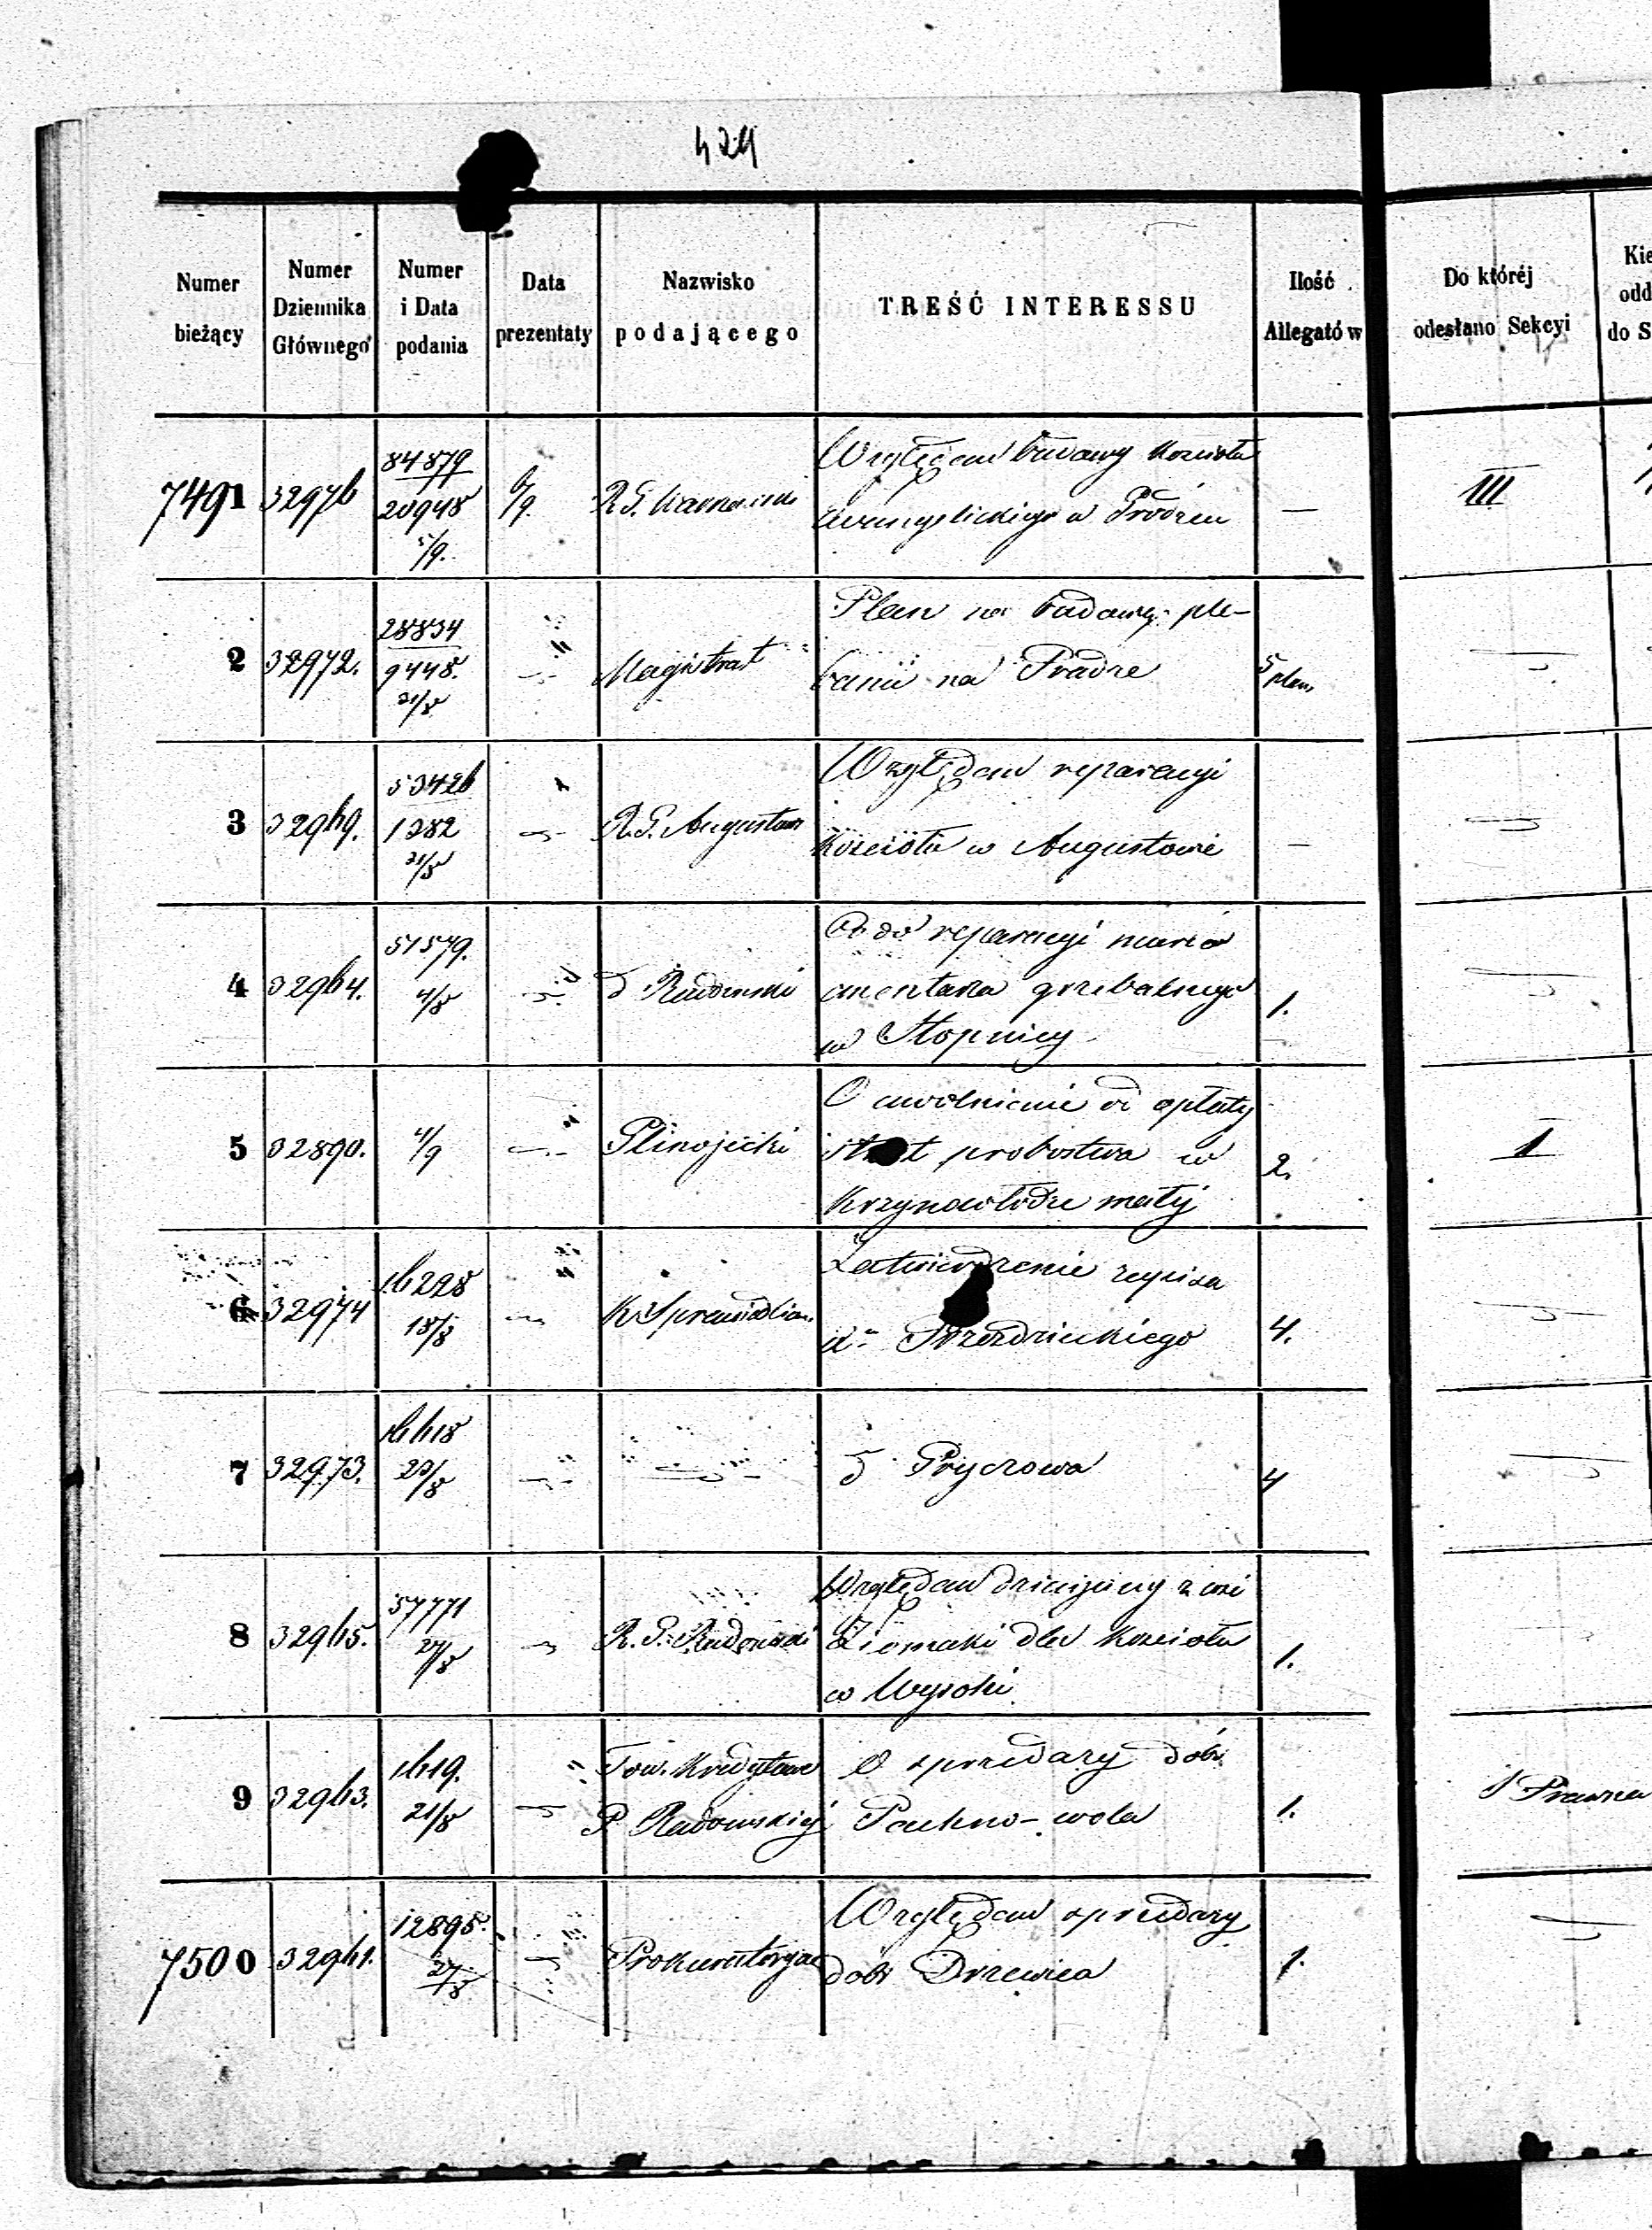 429
Numer bieżący
Numer Dziennika Głównego
Numer i Data podania
Data prezentaty
Nazwisko podającego
TREŚĆ INTERESSU
Ilość Allegatów
Do któréj odesłano Sekcyi
7491 32976 84879 20948 5/9. 6/9. R. G. Warszawski Względem budowy Kościoła —  III
Ewangelickiego w
2 32972. 28834 9448. 21/8 Magistrat Plan na budowę ple-
banii na Pradze 5 plan
3 32969. 53426 1282 21/8 R. G. Augustow Względem reparacyi
Kościoła w Augustowie —
4 32964. 51579. 4/8 d Radomski Ando reparacyi muru
cmentarza grzebalnego 1.
w Stopnicy
5 32890. 4/9 Plinojecki O uwolnienie od opłaty
probostwa w 2. I
Krzynowłodze małej
6 32974 16228 18/8 K. Sprawiedliw. Zatwierdzenie zapisu
Przezdzieckiego 4.
7 32973. 16618 23/8 d Pryczowa 4
8 32965. 57771 27/8 R. G. Radomski Względem dziesięciny z wsi
Ziomaki dla Kościoła 1.
w Wysoki
9 32963. 1619. 21/8 Tow. Kredytowe O sprzedaży dóbr
P Radomskiej Pachno-wola 1. S Prawna
7500 32961. 12895. 27/8 Prokuratorya Względem sprzedaży
dóbr Drzewica 1.